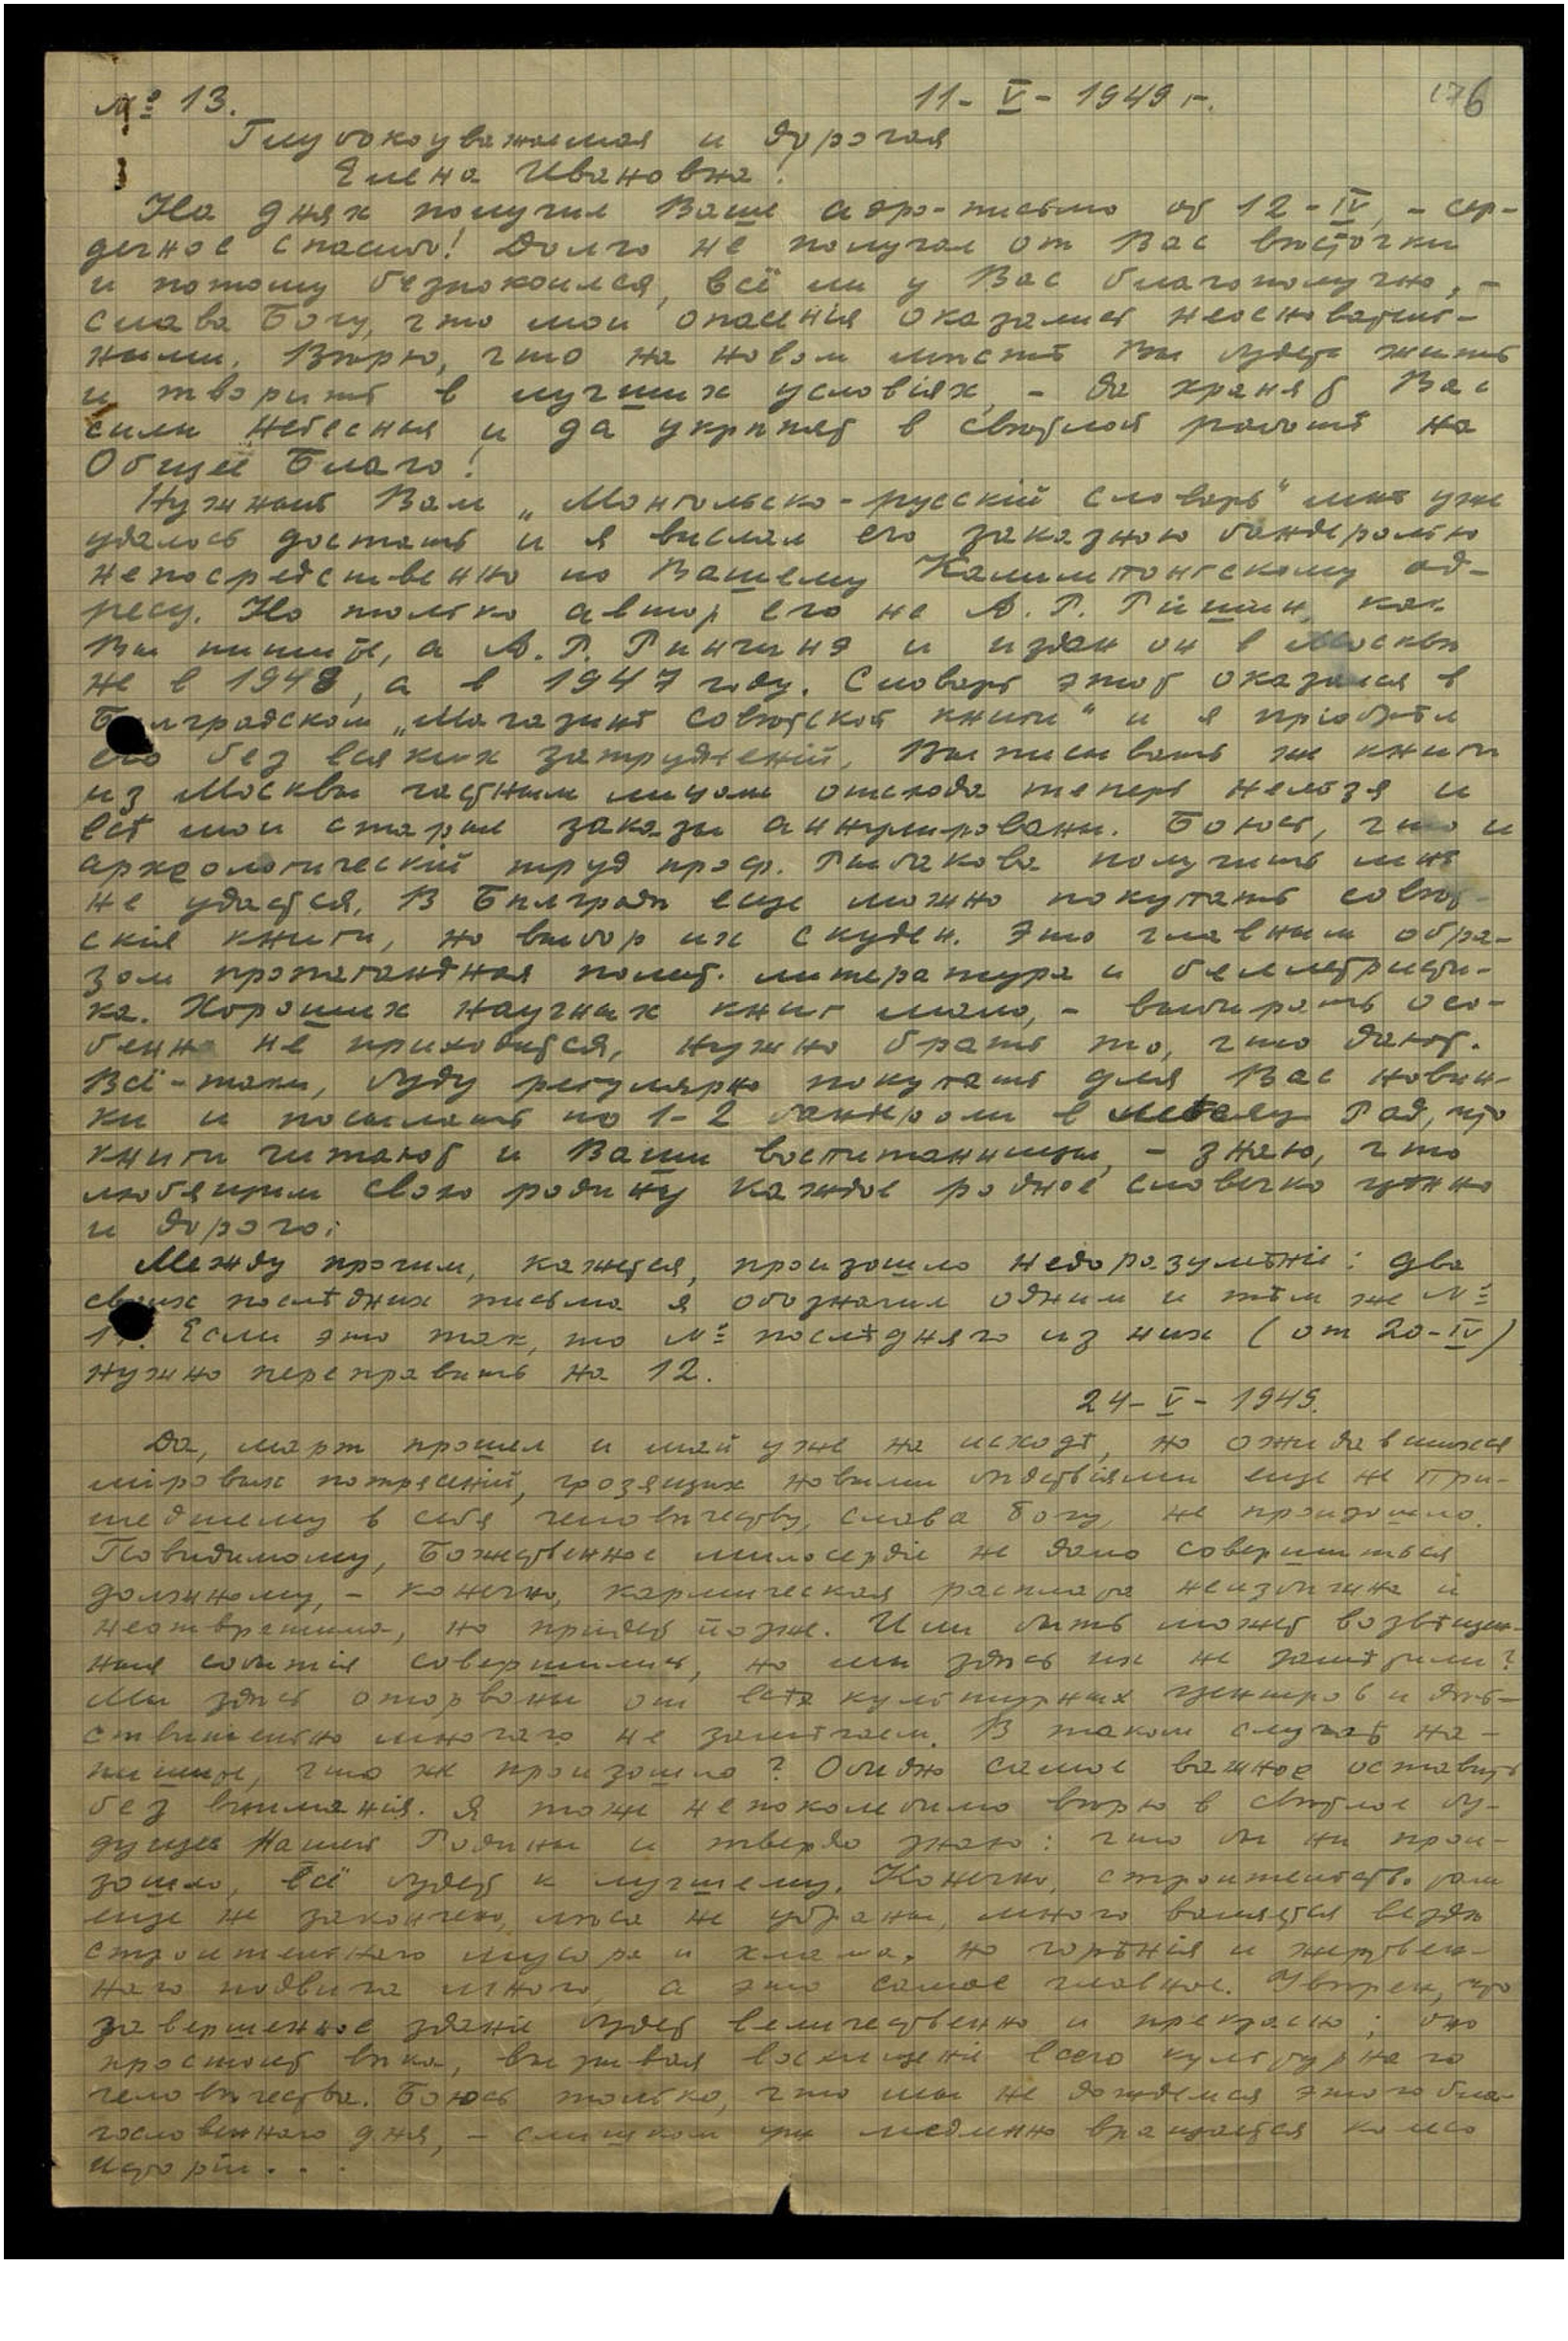 № 13. 11-V-1949 г. 176
Глубокоуважаемая и дорогая
Елена Ивановна!
На днях получил Ваше аэро-письмо от 12-IV, - сер-
дечное спасибо! Долго не получал от Вас вѣсточки
и потому безпокоился, всё ли у Вас благополучно, -
слава Богу, что мои опасенія оказались неоснователь-
ными. Вѣрю, что на новом мѣстѣ Вы будете жить
и творить в лучших условіях, - да хранят Вас
силы Небесныя и да укрѣпят в свѣтлой работѣ на
Общее Благо!
Нужный Вам „Монгольско-русскій словарь" мнѣ уже
удалось достать и я выслал его заказною бандеролью
непосредственно по Вашему Калимпонгскому ад-
ресу. Но только автор его не А. Р. Ришин, как
Вы пишете, а А. Р. Ринчинэ и издан он в Москвѣ
не в 1948, а в 1947 году. Словарь этот оказался в
Бѣлградском „Магазинѣ совѣтской книги" и я пріобрѣл
его без всяких затрудненій. Выписывать же книги
из Москвы частным лицам отсюда теперь нельзя и
всѣ мои старые заказы аннулированы. Боюсь, что и
археологическій труд проф. Рыбакова получить мнѣ
не удастся. В Бѣлградѣ еще можно покупать совѣт-
скія книги, но выбор их скуден. Это главным обра-
зом пропагандная полит. литература и беллетристи-
ка. Хороших научных книг мало, - выбирать осо-
бенно не приходится, нужно брать то, что дают.
Всё-таки, буду регулярно покупать для Вас новин-
ки и посылать по 1-2 бандероли в недѣлю. Рад, что
книги читают и Ваши воспитанницы, - знаю, что
любящим свою родину каждое родное словечко цѣнно
и дорого.
Между прочим, кажется, произошло недоразумѣніе: два
своих послѣдних письма я обозначил одним и тѣм же №
11. Если это так, то № послѣдняго из них (от 20-IV)
нужно переправить на 12.
24-V-1949.
Да, март прошел и май уже на исходѣ, но ожидавшихся
міровых потрясеній, грозящих новыми бѣдствіями еще не при-
шедшему в себя человѣчеству, слава Богу, не произошло.
Повидимому, Божественное милосердіе не дало совершиться
должному, - конечно, кармическая расплата неизбѣжна и
неотвратима, но придет позже. Или быть может возвѣщен-
ныя событія совершились, но мы здѣсь их не замѣтили?
Мы здѣсь оторваны от всѣх культурных центров и дѣй-
ствительно многаго не замѣчаем. В таком случаѣ на-
пишите, что же произошло? Обидно самое важное оставить
без вниманія. Я тоже непоколебимо вѣрю в свѣтлое бу-
дущее Нашей Родины и твердо знаю: что бы ни прои-
зошло, всё будет к лучшему. Конечно, строительство там
еще не закончено, лѣса не убраны, много валяется вездѣ
строительнаго мусора и хлама, но горѣнія и жертвен-
наго подвига много, а это самое главное. Увѣрен, что
завершенное зданіе будет величественно и прекрасно; оно
простоит вѣка, вызывая восхищеніе всего культурнаго
человѣчества. Боюсь только, что мы не дождемся этого бла-
гословеннаго дня, - слишком уж медленно вращается колесо
исторіи...